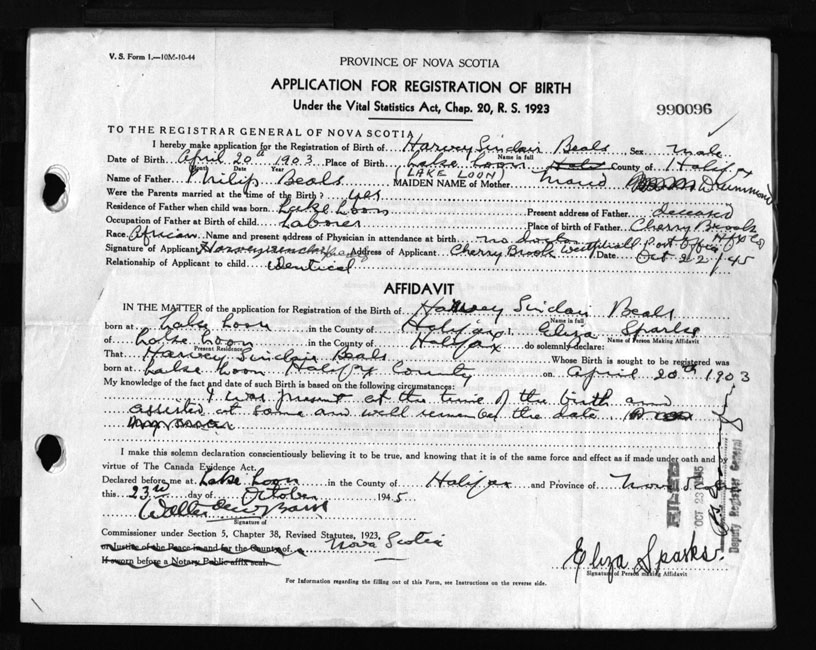 V. S. Form 1.—10M-10-44
PROVINCE OF NOVA SCOTIA
APPLICATION FOR REGISTRATION OF BIRTH
Under the Vital Statistics Act, Chap. 20, R. S. 1923
990096
TO THE REGISTRAR GENERAL OF NOVA SCOTIA
I hereby make application for the Registration of Birth of Harvey Sinclair Beals Sex male
Name in full
Date of Birth April 20th 1903 Place of Birth Lake Loon County of Halifax
Month Date Year
(LAKE LOON)
Name of Father Philip Beals MAIDEN NAME of Mother Maud Drummond
Were the Parents married at the time of the Birth? yes
Residence of Father when child was born Lake Loon Present address of Father deceased
Occupation of Father at Birth of child Laborer Place of birth of Father Cherry Brook
Hfx Co
Race African Name and present address of Physician in attendance at birth no doctor
Signature of Applicant Harvey Sinclair Address of Applicant Cherry Brook Westphall Post Office Date Oct 22/45
Relationship of Applicant to child identical
AFFIDAVIT
IN THE MATTER of the application for Registration of the Birth of Harvey Sinclair Beals
Name in full
born at Lake Loon in the County of Halifax I, Eliza Sparks
Name of Person Making Affidavit
of Lake Loon in the County of Halifax do solemnly declare:
Present Residence
That Harvey Sinclair Beals Whose Birth is sought to be registered was
born at Lake Loon Halifax County on April 20th 1903
My knowledge of the fact and date of such Birth is based on the following circumstances:
I was present at the time of the birth and
assisted at same and well remember the date
I make this solemn declaration conscientiously believing it to be true, and knowing that it is of the same force and effect as if made under oath and by
virtue of The Canada Evidence Act.
Declared before me at Lake Loon in the County of Halifax and Province of Nova Scotia
this 23rd day of October 1945
Signature of
Commissioner under Section 5, Chapter 38, Revised Statutes, 1923, Nova Scotia
or Justice of the Peace in and for the County of
If sworn before a Notary Public affix seal.
Eliza Sparks
Signature of Person making Affidavit
For Information regarding the filling out of this Form, see Instructions on the reverse side.
FILED
OCT 23 1945
Deputy Registrar General